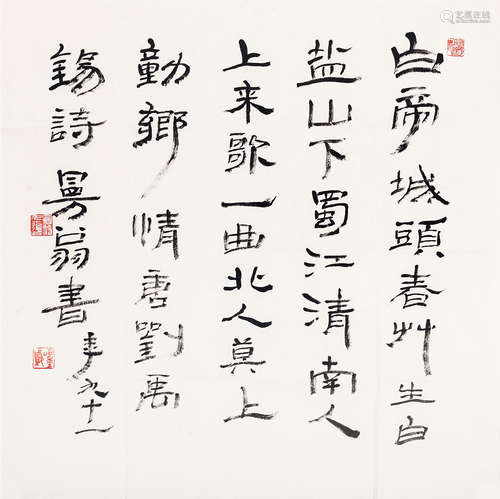 白帝城頭春艸生白
盐山下蜀江清南人
上来歌一曲北人莫上
動鄉情唐劉禹
錫詩曼翁書年九十一